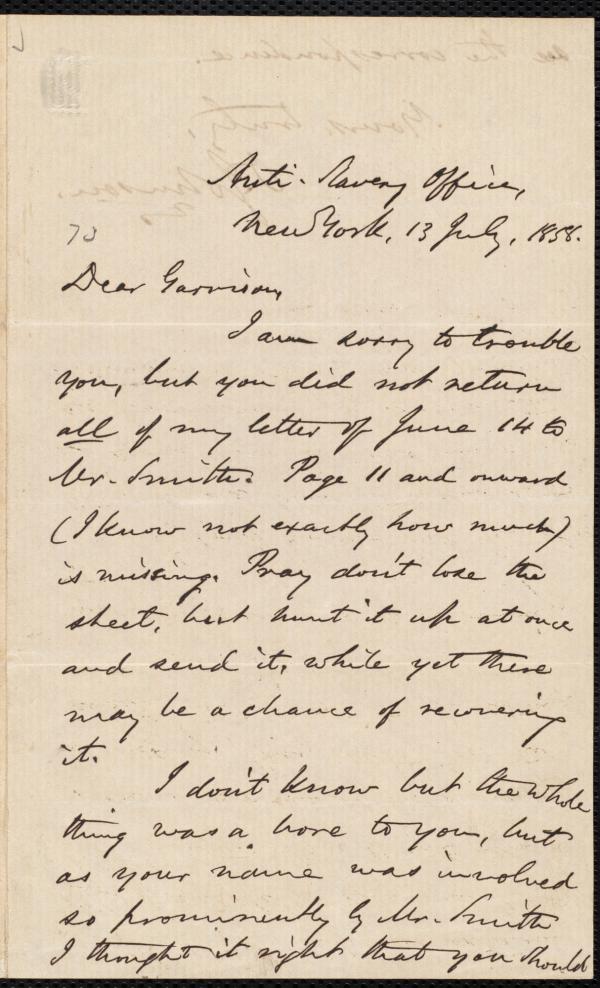 see the correspondence.
Yours, truly,
Johnson.
Anti-Slavery Office,
New York, 13 July, 1858.
73
Dear Garrison,
I am sorry to trouble
you, but you did not return
all of my letter of June 14 to
Mr. Smith. Page 11 and onward
(I know not exactly how much)
is missing. Pray don't lose the
sheet, but hunt it up at once
and send it, while yet there
may be a chance of recovering
it.
I don't know but the whole
thing was a bore to you, but
as your name was involved
so prominently by Mr. Smith
I thought it right that you should